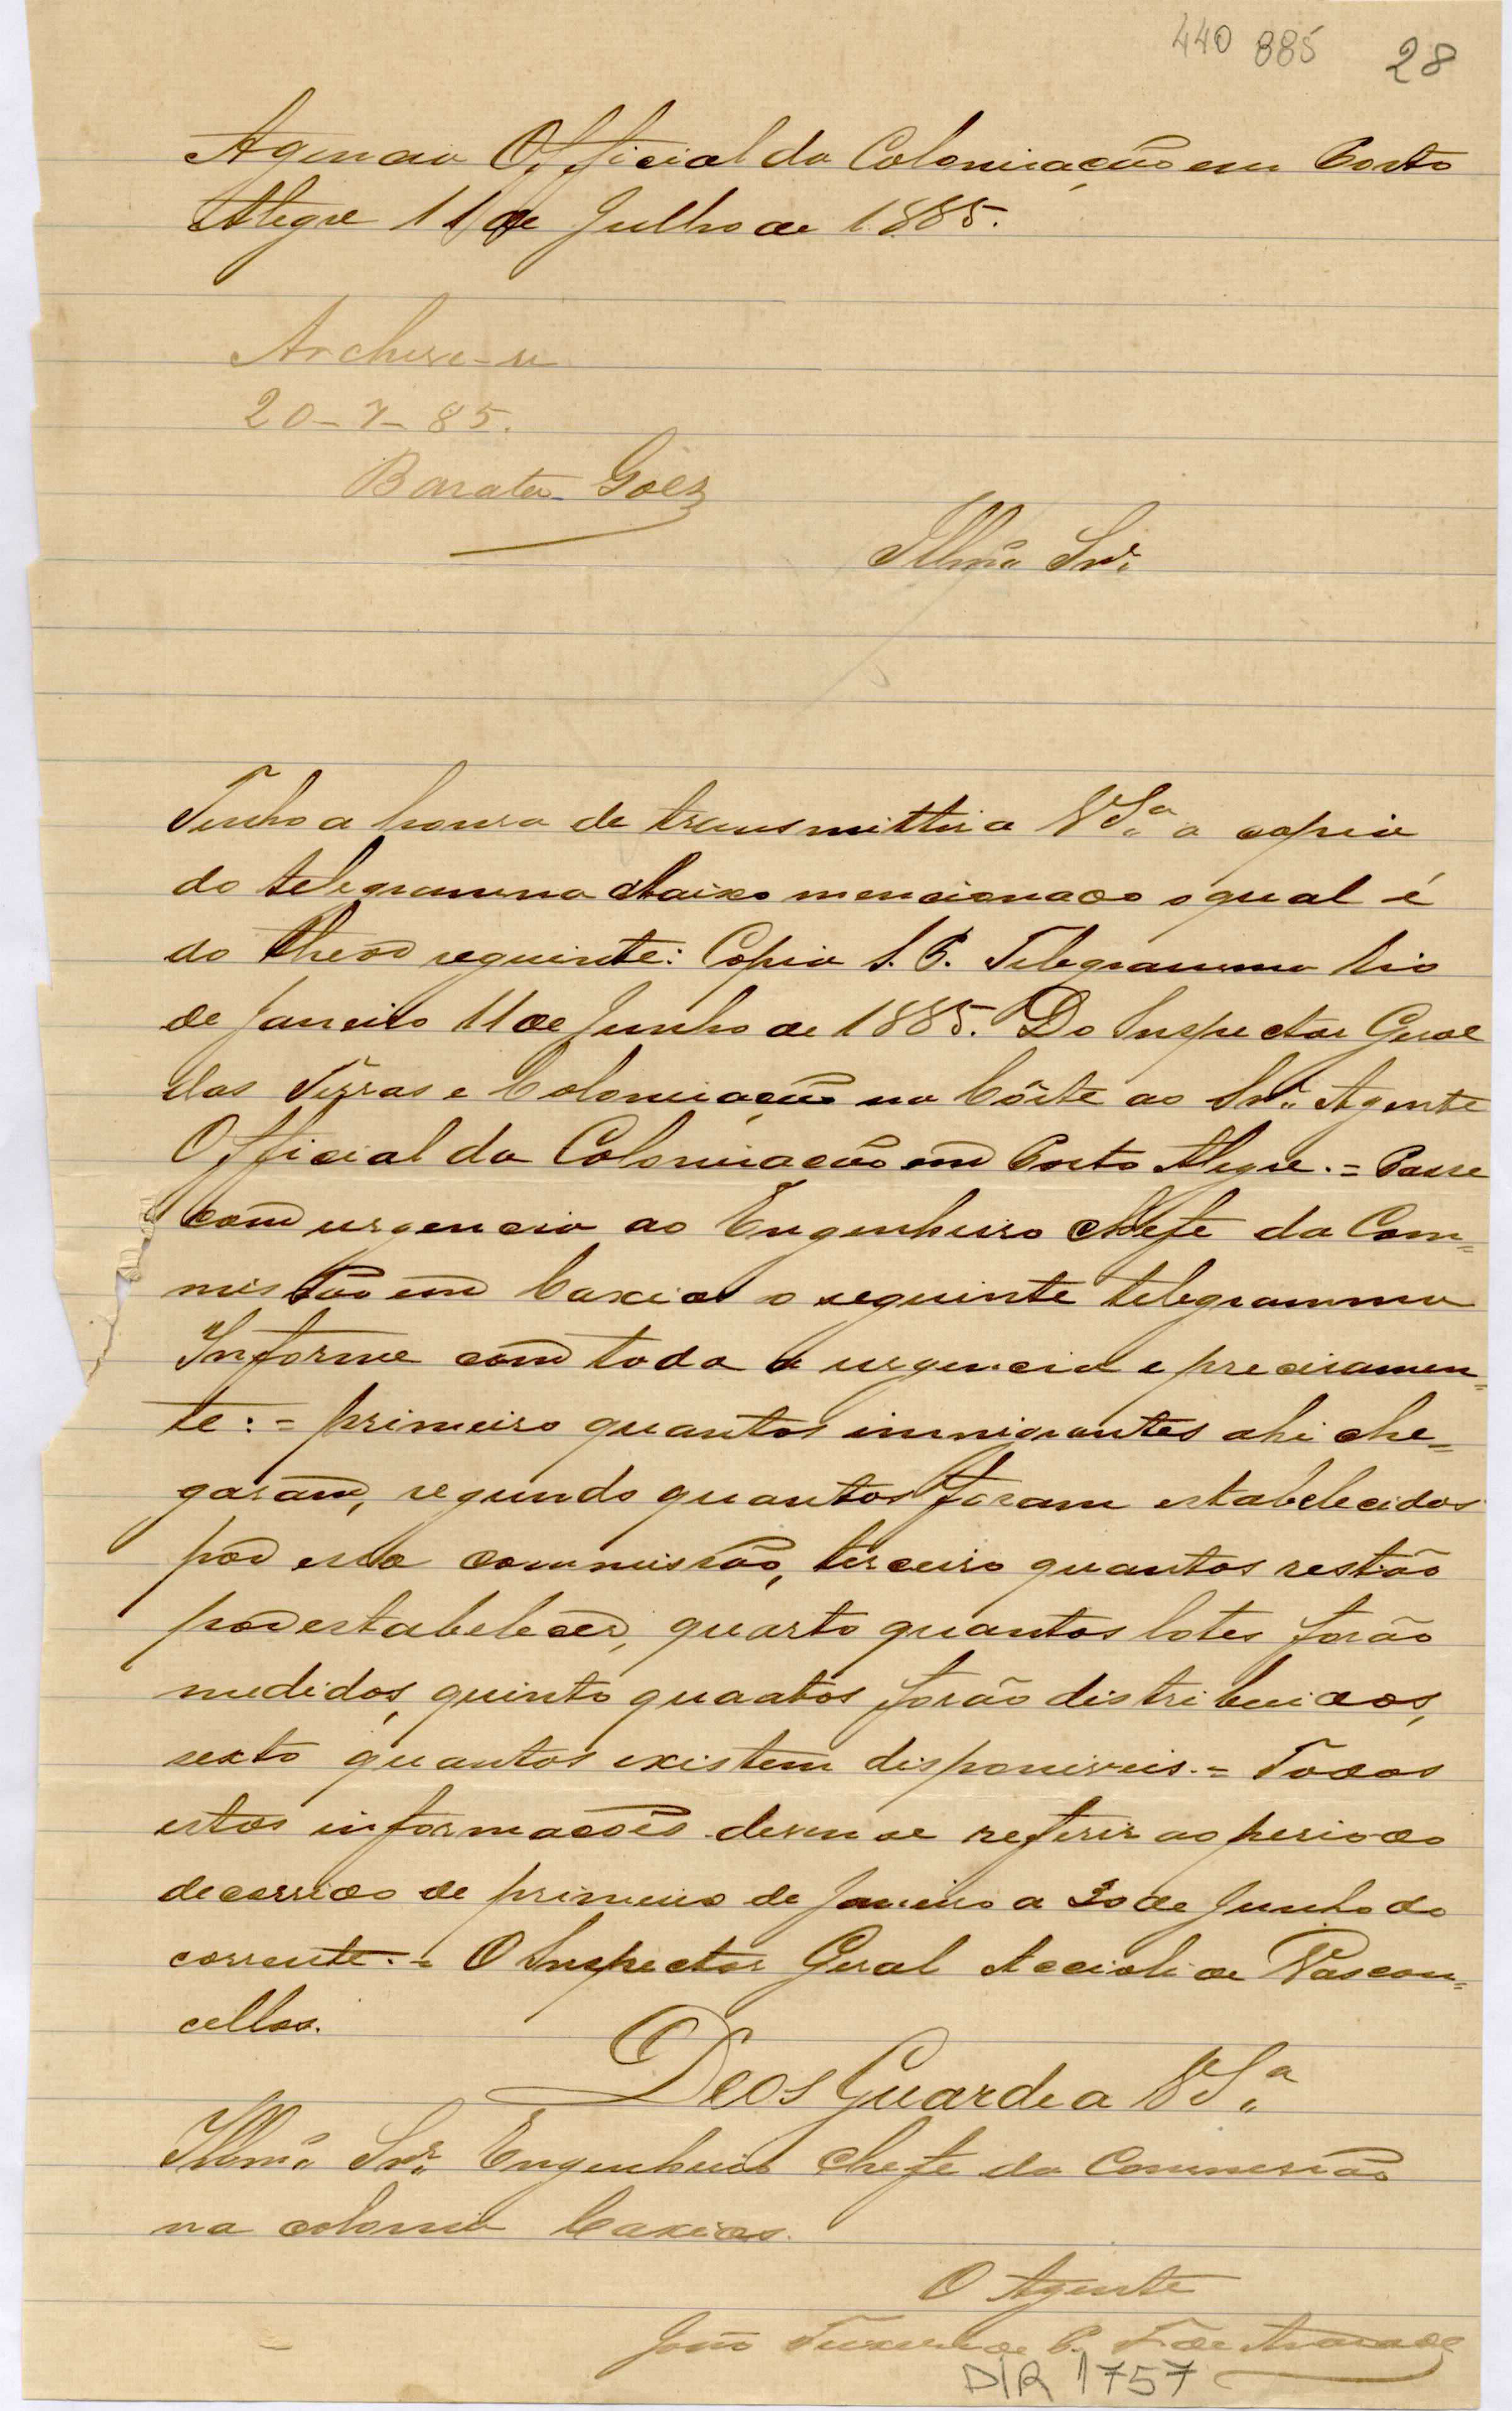 440 885 28
Agencia Official da Colonisação em Porto
Alegre 11 de Julho de 1885.
Archive-se
20-7-85.
Barata Góes
Illmo Snr.
Tenho a honra de transmittir a V Sa a copia
do telegramma abaixo mencionado o qual é
do theor seguinte: Copia S. P. Telegramma Rio
de Janeiro 11 de Junho de 1885. Do Inspector Geral
das Terras e Colonisação na Côrte ao Snr. Agente
Official da Colonisação em Porto Alegre. = Passe
com urgencia ao Engenheiro Chefe da Com=
missão em Caxias o seguinte telegramma
Informe com toda a urgencia e precisamen=
te: = primeiro quantos immigrantes ahi che=
garam, segundo quantos foram estabelecidos
por essa commissão, terceiro quantos restão
por estabelecer, quarto quantos lotes forão
medidos, quinto quantos forão distribuidos,
sexto quantos existem disponiveis. = Todas
estas informações devem se referir ao periodo
decorrido de primeiro de Janeiro a 30 de Junho do
corrente. = O Inspector Geral Accioli de Vascon=
cellos.
Deos Guarde a V Sa
Illmo Snr. Engenheiro Chefe da Commissão
na colonia Caxias.
O Agente
João de P. de Andrade
DIR 1757